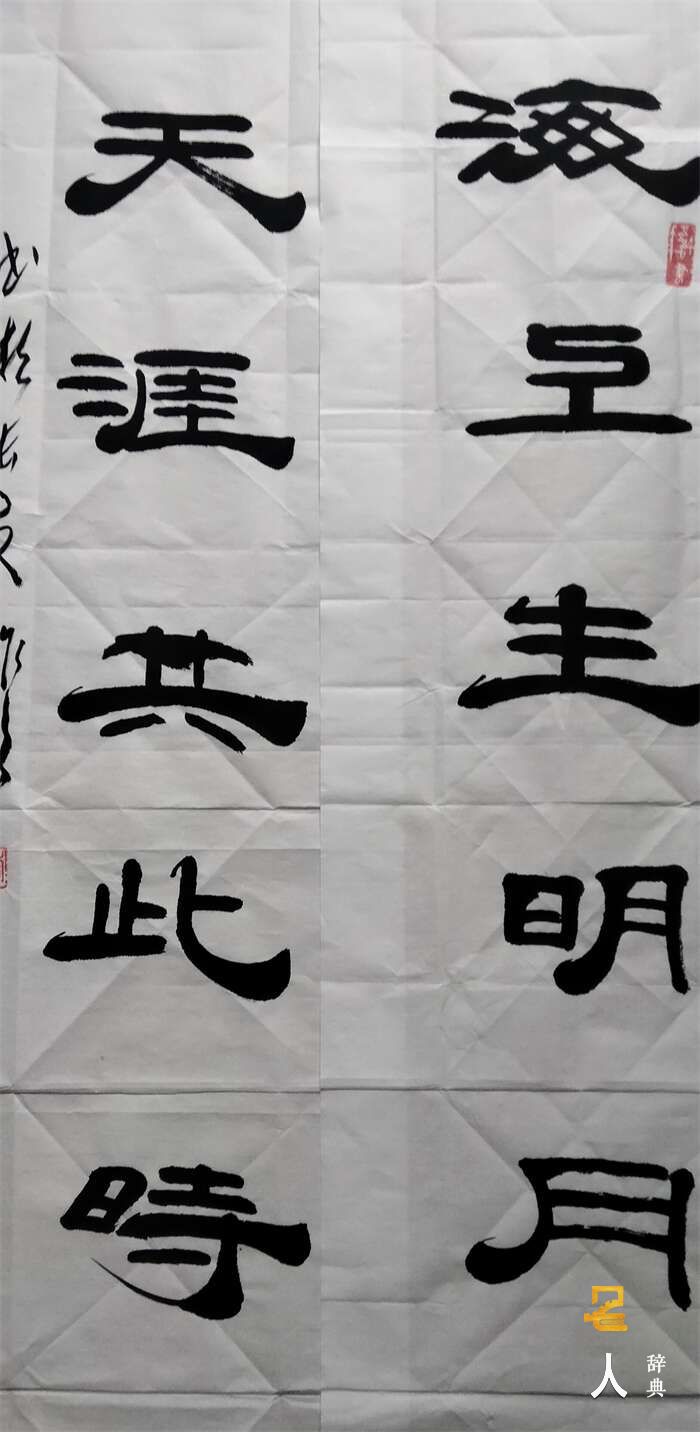 海上生明月
天涯共此時
书於长
人
辞典